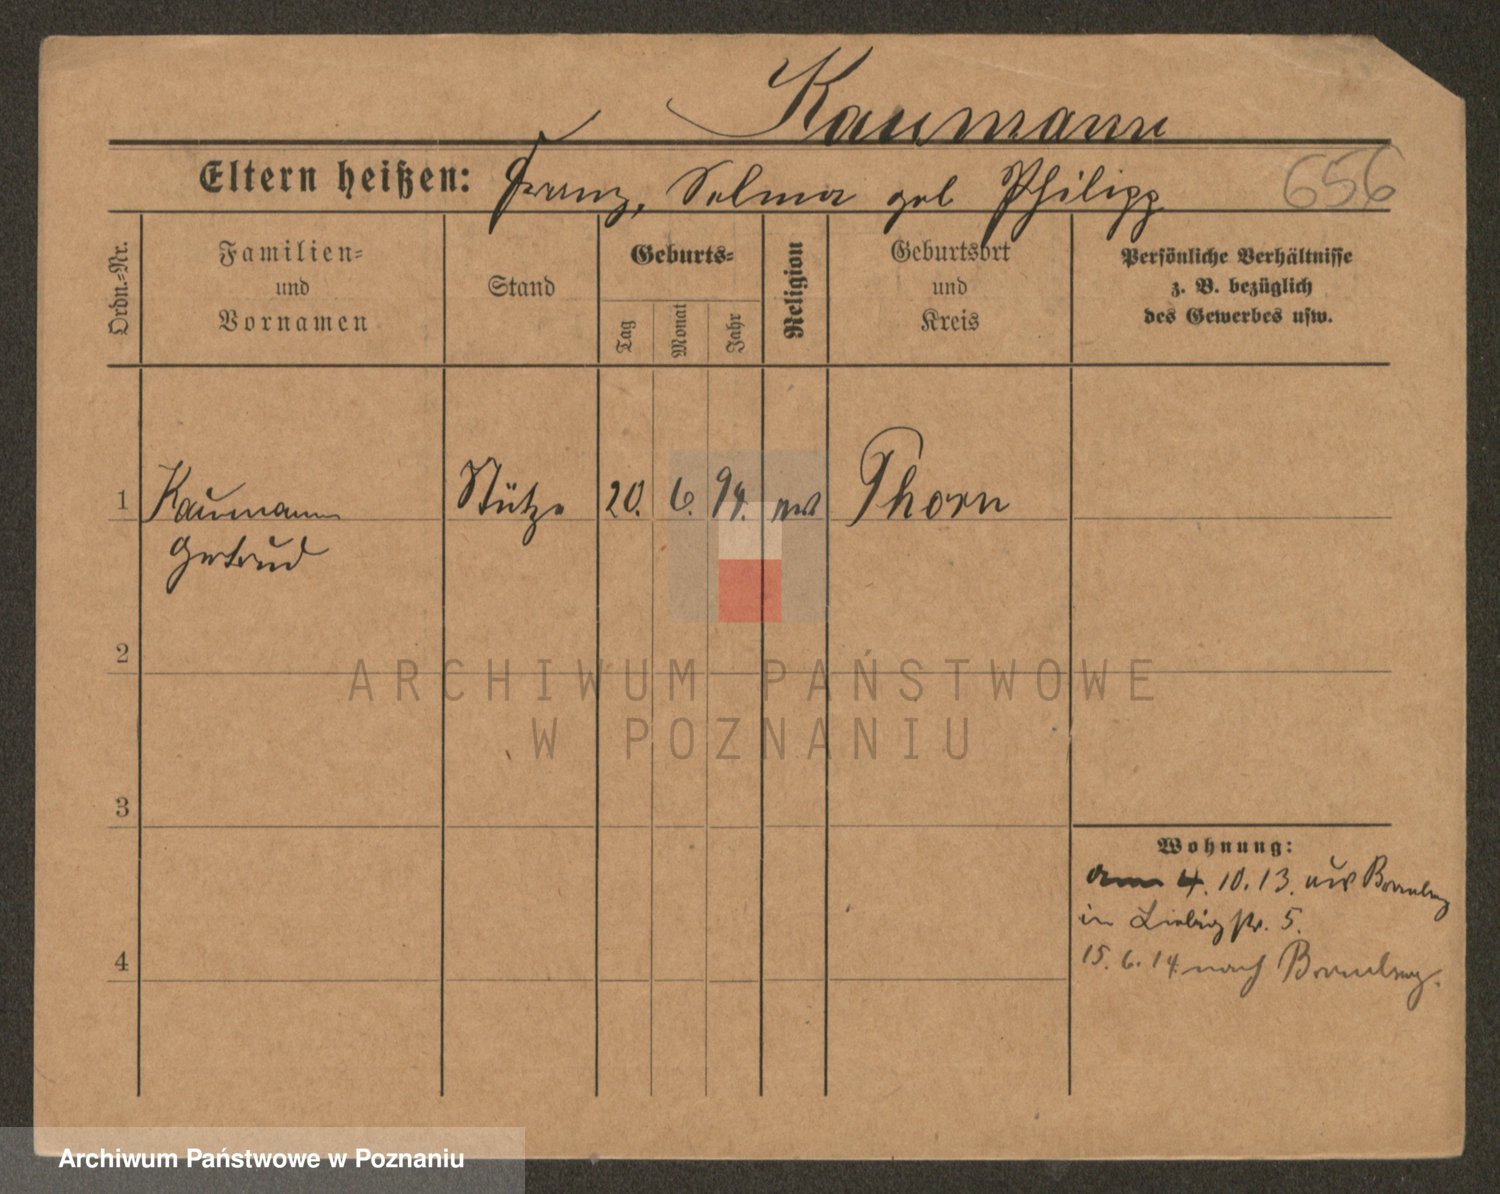 Kaumann
Eltern heißen: Franz, Selma geb Philipp
656
Ordn.=Nr.
Familien=
und
Vornamen
Stand
Geburts=
Tag
Monat
Jahr
Religion
Geburtsort
und
Kreis
Persönliche Verhältnisse
z. B. bezüglich
des Gewerbes usw.
1 Kaumann Stütze 20. 6. 94. ev Thorn
Gertrud
2
3
4
Wohnung:
am 4. 10. 13. aus Bromberg
in Liebigstr. 5.
15. 6. 14 nach Bromberg.
ARCHIWUM PAŃSTWOWE
W POZNANIU
Archiwum Państwowe w Poznaniu